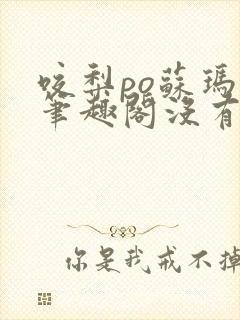 咬梨po蘇瑪
筆趣閣沒有
你是我戒不掉